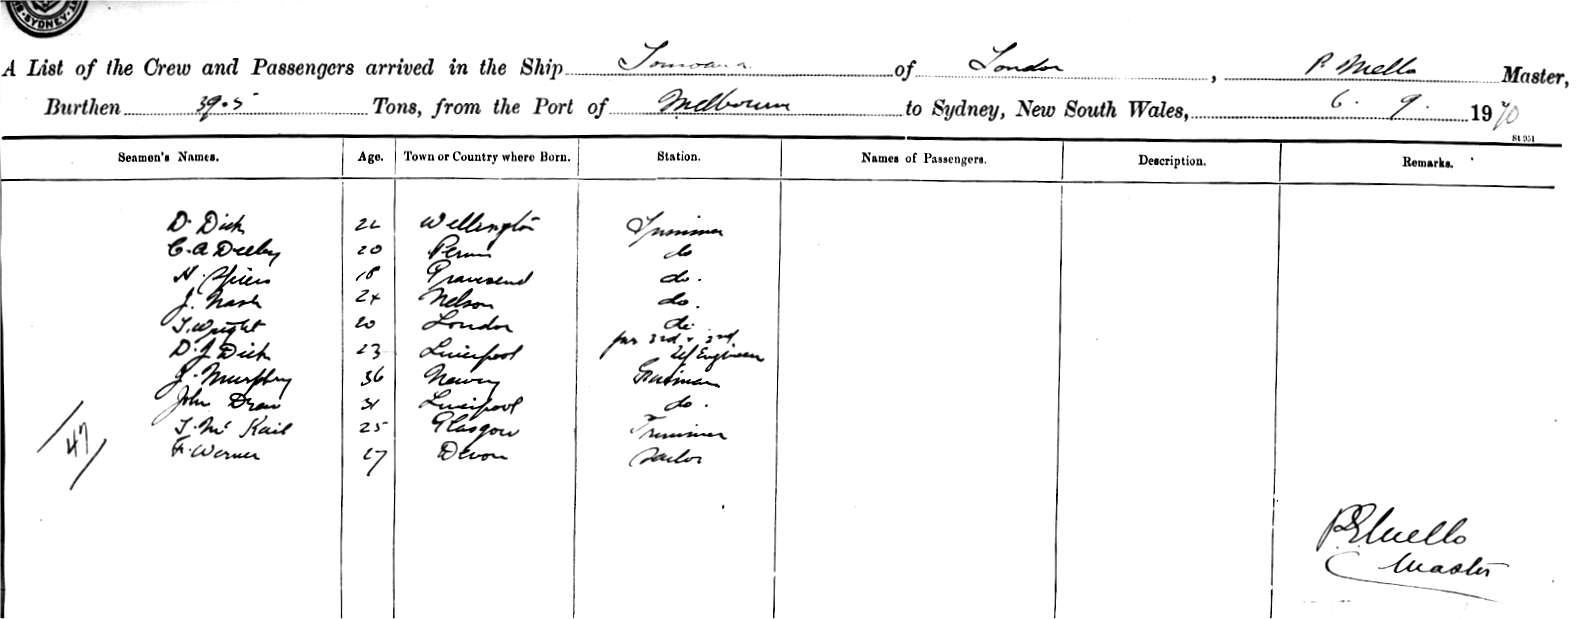 SYDNEY
A List of the Crew and Passengers arrived in the Ship Tomoana of London, R Mello Master,
Burthen Tons, from the Port of Melbourne to Sydney, New South Wales, 6. 9. 1910
St 951
Seamen's Names. Age. Town or Country where Born. Station. Names of Passengers. Description. Remarks.
D. Dick 22 Wellington Trimmer
C. A Deeley 20 do
H. Spiers 18 Gravesend do.
J. Nash 24 Nelson do.
T. Wright 20 London do.
D. J Dick 23 Liverpool 3rd & 2nd Engineer
J. Murphy 36 Newry Fireman
John Draw 31 Liverpool do.
T. Mc Kail 25 Glasgow Trimmer
F. Warner 27 Devon Sailor
47
Mello
Master